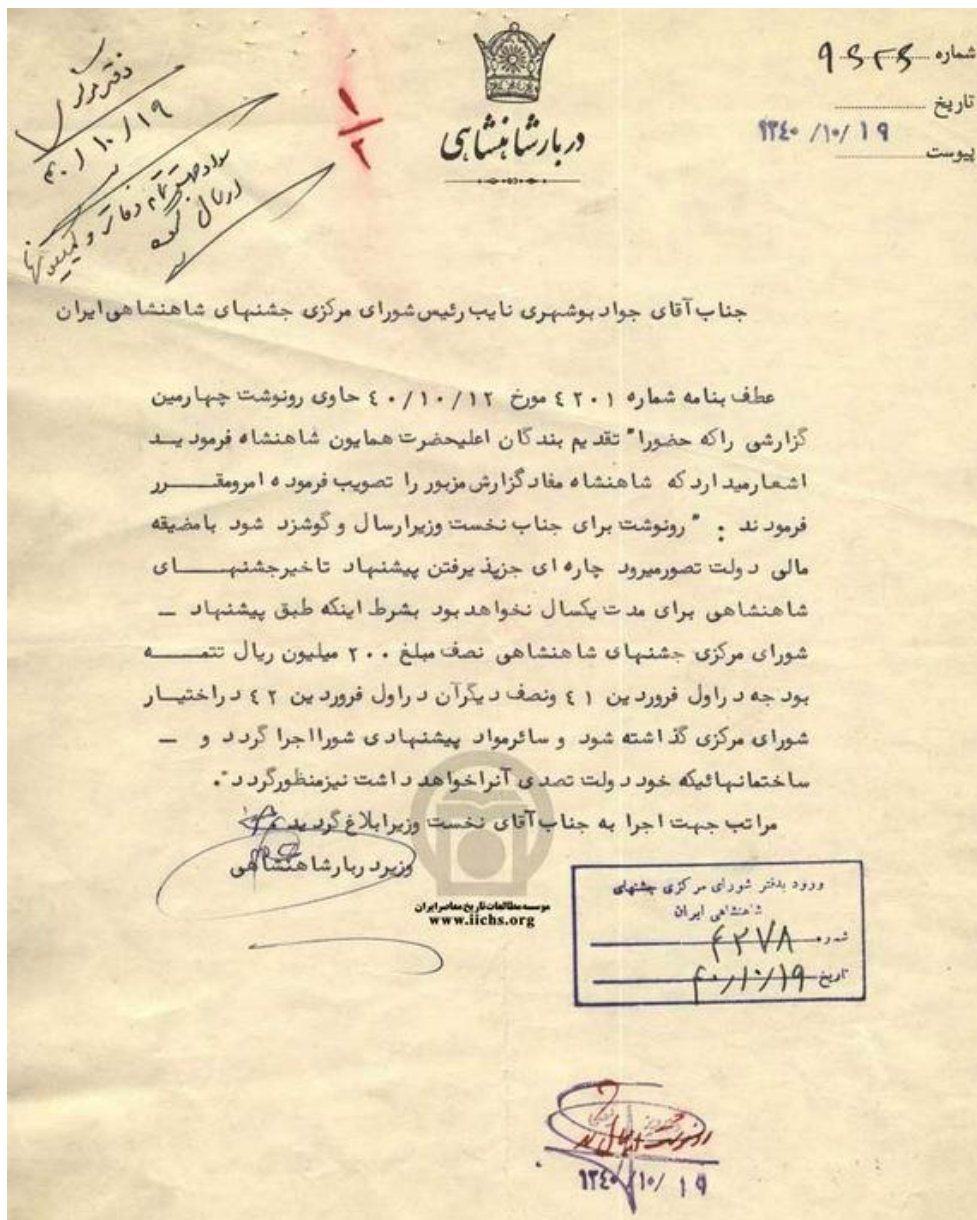 شماره
تاریخ
۱۳۴۰ /۱۰/ ۱۹
پیوست
دربار شاهنشاهی
۱
۲
دفتر مرکزی
۴۰/۱۰/۱۹
ارسال شود
جناب آقای جواد بوشهری نایب رئیس شورای مرکزی جشنهای شاهنشاهی ایران
عطف بنامه شماره ۴۲۰۱ مورخ ۴۰/۱۰/۱۲ حاوی رونوشت چهارمین
گزارشی راکه حضورا" تقدیم بندگان اعلیحضرت همایون شاهنشاه فرمودیــد
اشعارمیدارد که شاهنشاه مفاد گزارش مزبور را تصویب فرموده امرومقــرر
فرمودند : " رونوشت برای جناب نخست وزیرارسال و گوشزد شود بامضیقه
مالی دولت تصورمیرود چاره ای جزپذیرفتن پیشنهاد تاخیرجشنهــای
شاهنشاهی برای مدت یکسال نخواهد بود بشرط اینکه طبق پیشنهاد ـ
شورای مرکزی جشنهای شاهنشاهی نصف مبلغ ۲۰۰ میلیون ریال تتمــه
بودجه دراول فروردین ۴۱ ونصف دیگرآن دراول فروردین ۴۲ دراختیــار
شورای مرکزی گذاشته شود و سائرمواد پیشنهادی شورااجرا گردد و ـ
ساختمانهائیکه خود دولت تصدی آنراخواهد داشت نیزمنظورگردد".
مراتب جهت اجرا به جناب آقای نخست وزیرابلاغ گردید
وزیردربارشاهنشاهی
موسسه مطالعات تاریخ معاصر ایران
www.iichs.org
ورود بدفتر شورای مرکزی جشنهای
شاهنشاهی ایران
شماره ۴۲۷۸
تاریخ ۴۰/۱۰/۱۹
رونوشت ارسال شد
۱۳۴۰ /۱۰/ ۱۹